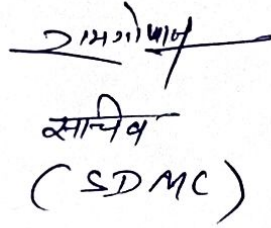 रामगोपाल
सचिव
(SDMC)